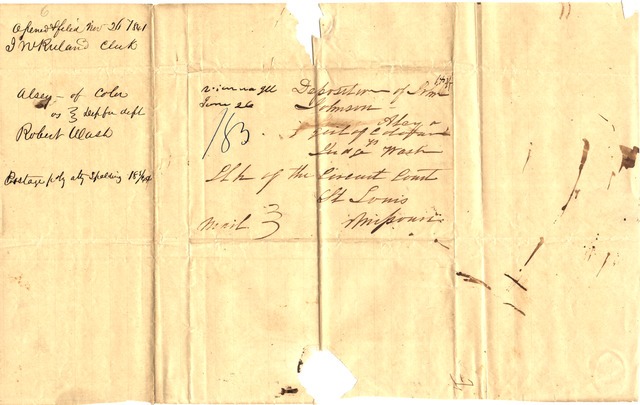 Opened & filed Nov 26 1841
J W Ruland Clerk
Alsey - of Color
vs } Dep for deft
Robert Wash
Postage pd by atty Spalding 18 3/4
June 26
18 3/4
Deposition of
Johnson
Alsey a
girl of Color
vs
Judge Wash
Clk of the Circuit Court
St Louis
Missouri
Mail }